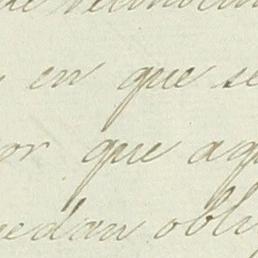 de
en que se
or que aqu
uedan obli